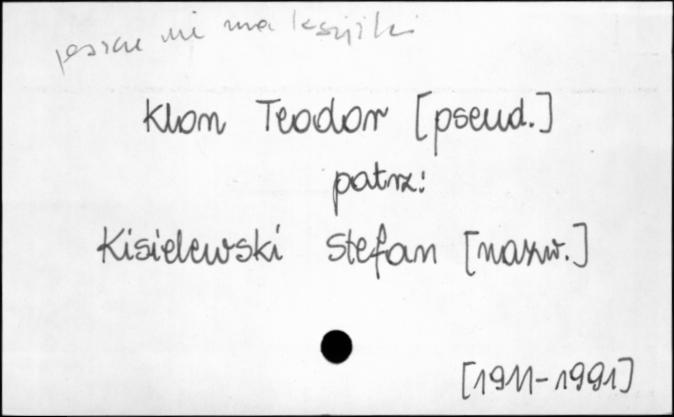 jeszcze nie ma książki
Klon Teodor [pseud.]
patrz:
Kisielewski Stefan [nazw.]
[1911-1991]